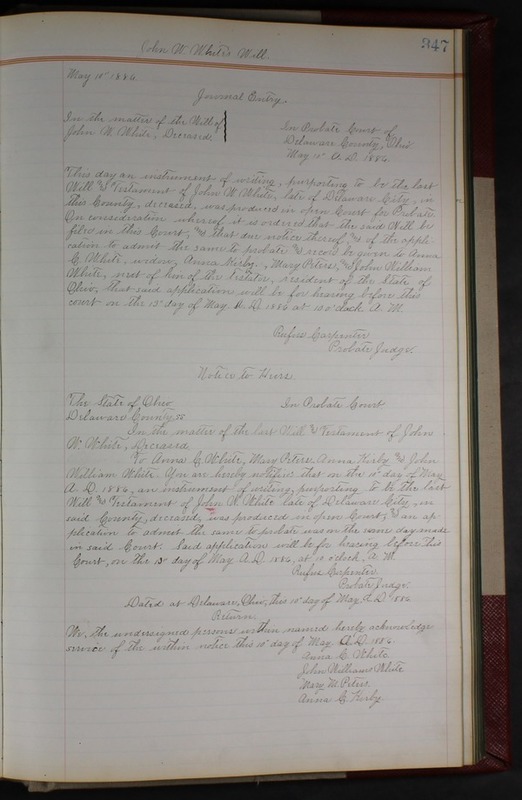 John W. White's Will.
347
May 10" 1886
Journal Entry.
In the matter of the Will of
John W. White, Deceased
In Probate Court of
Delaware County, Ohio
May 10" A.D. 1886.
This day an instrument of writing, purporting to be the last
Will & Testament of John W. White, late of Delaware City, in
this County, deceased, was produced in open Court for Probate.
On consideration whereof it is ordered that the said Will be
filed in this Court, & that due notice thereof, & of the appli-
cation to admit the same to probate & record be given to Anna
C. White, widow, Anna Kirby, Mary Peters, & John William
White, next of kin of the testator, resident of the State of
Ohio, that said application will be for hearing before this
court on the 13" day of May A.D. 1886 at 10 o'clock A.M.
Rufus Carpenter
Probate Judge.
Notice to Heirs.
The State of Ohio
Delaware County, ss
In Probate Court
In the matter of the last Will & Testament of John
W. White, Deceased
To Anna C. White, Mary Peters, Anna Kirby & John
William White. You are hereby notified that on the 10" day of May
A.D. 1886, an instrument of writing, purporting to be the last
Will & Testament of John W. White late of Delaware City, in
said County, deceased, was produced in open Court, & an ap-
plication to admit the same to probate was on the same day made
in said Court. Said application will be for hearing before this
Court, on the 13" day of May A.D. 1886, at 10 o'clock A.M.
Rufus Carpenter
Probate Judge.
Dated at Delaware, Ohio, this 10" day of May. A.D. 1886
Return.
We, the undersigned persons within named hereby acknowledge
service of the within notice this 10" day of May A.D. 1886.
Anna C. White
John Williams White
Mary M. Peters
Anna G. Kirby